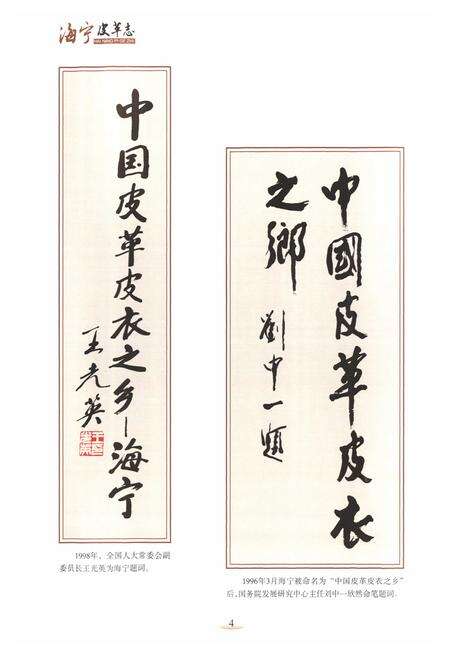 海宁皮革志
中国皮革皮衣之乡—海宁
王光英
中國皮革皮衣
之鄉
劉中一題
1998年，全国人大常委会副
委员长王光英为海宁题词。
1996年3月海宁被命名为“中国皮革皮衣之乡”
后，国务院发展研究中心主任刘中一欣然命笔题词。
4